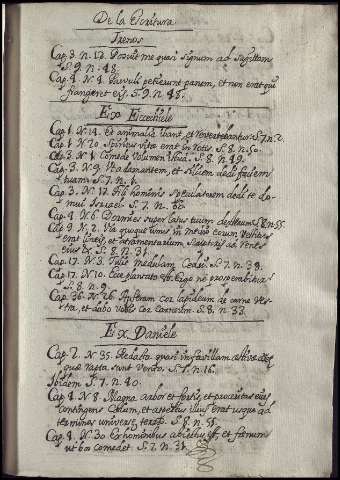 De la Escritura
Trenos
Cap. 3. n. 12. Posuit me quasi signum ad sagittam
S. 9. n. 48.
Cap. 4. N. 4. Parvuli petierunt panem, et non erat qui
frangeret eis. S. 9. n. 48.
Ex Ezechiele
Cap. 1. N. 14. Et animalia ibant, et revertebantur. S. 7. n. 2.
Cap. 1. N. 20. Spiritus vitæ erat in rotis. S. 8. n. 50.
Cap. 3. N. 1. Comede volumen S. 8. n. 49.
Cap. 3. N. 9. Ut adamantem, et silicem dedi faciem
tuam. S. 7. n. 1.
Cap. 3. N. 17. Fili hominis speculatorem dedi te do-
mui Israel. S. 7. n.
Cap. 4. N. 6. Dormies super latus tuum dexterum S. 8. n. 55.
Cap. 9. N. 2. Vir quoque unus in medio eorum vestitus
erat lineis, et atramentarium scriptoris ad renes
eius S. 8. n. 31.
Cap. 17. N. 3. Tulit medullam Cedri. S. 7. n. 39.
Cap. 17. N. 10. Ecce plantata est. Ergo ne prosperabitur?
S. 8. n. 9.
Cap. 36. N. 26. Auferam cor lapideum de carne ves-
tra, et dabo vobis cor carneum. S. 8. n. 33.
Ex Daniele
Cap. 2. N. 35. Redacta quasi in favillam æstivæ areæ
quæ rapta sunt vento. S. 7. n. 16.
Ibidem S. 7. n. 40.
Cap. 4. N. 8. Magna arbor et fortis, et proceritas eius
contingens Cælum, et aspectus illius erat usque ad
terminos universæ terræ. S. 8. n. 55.
Cap. 4. N. 30. Ex hominibus abiectus est, et fœnum
ut bos comedet S. 7. n. 31.